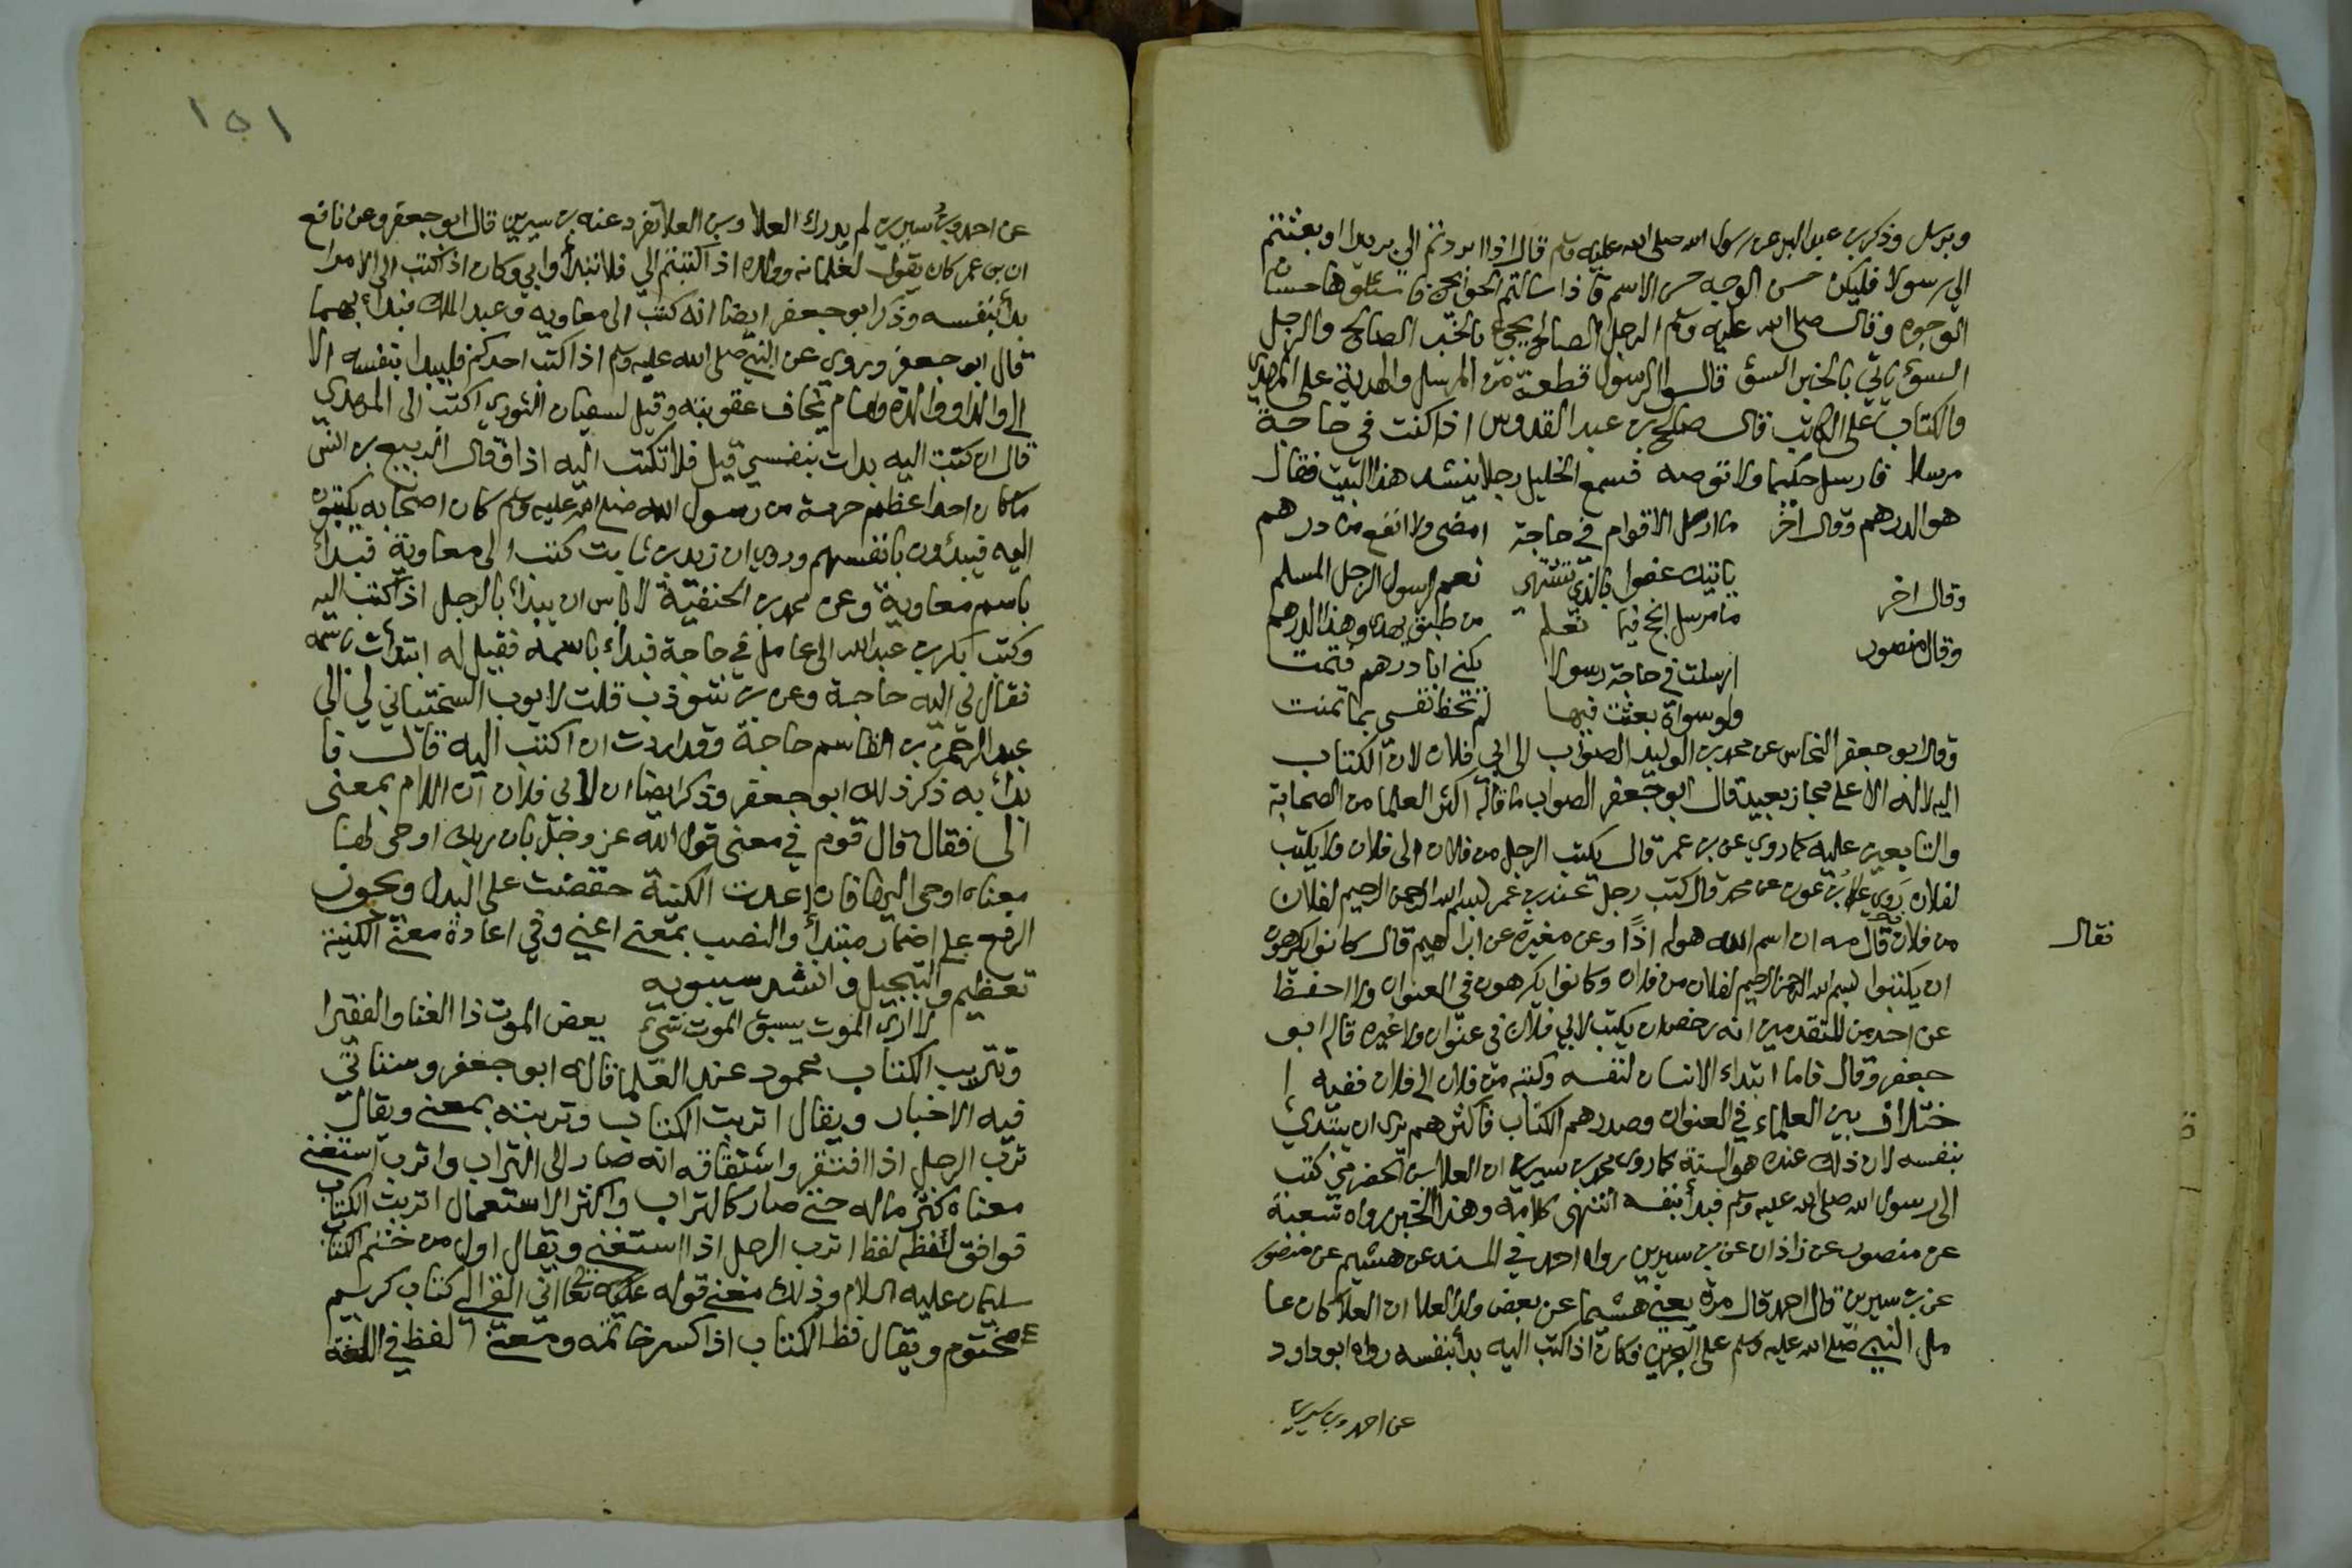 وبرسل وذكر بن عبد البر عن رسول الله صلى الله عليه وسلم قال اذا ابردتم الي بريدا او بعثتم
الي رسولا فليكن حسن الوجه حسن الاسم واذا سالتم الحوائج فاسئلوها حسان
الوجوه وقال صلى الله عليه وسلم الرجل الصالح يجيء بالخبر الصالح والرجل
السوء ياتي بالخبر السوء قالوا الرسول قطعة من المرسل والهدية على المهدي
والكتاب على الكاتب قال صالح بن عبد القدوس اذا كنت في حاجة
مرسلا فارسل حكيما ولا توصه فسمع الخليل رجلا ينشد هذا البيت فقال
هو الدرهم وقال اخر ما ارسل الاقوام في حاجة امضى ولا انفع من درهم
ياتيك عفوا بالذي تشتهي نعم رسول الرجل المسلم
وقال اخر ما مرسل انجح فيما تعلم من طبق يهدى وهذا الدرهم
وقال منصور ارسلت في حاجة رسولا يكنى ابا درهم فتمت
ولو سواه بعثت فيها لم تحظ نفسي بما تمنت
وقال ابو جعفر النحاس عن محمد بن الوليد الصواب الى ابي فلان لان الكتاب
اليه لا له الا على مجاز بعيد قال ابو جعفر الصواب ما قاله اكثر العلما من الصحابة
والتابعين عليه كما روي عن بن عمر قال يكتب الرجل من فلان الى فلان ولا يكتب
لفلان روي عن بن عون عن محمد قال كتب رجل عند بن عمر بسم الله الرحمن الرحيم لفلان
من فلان قال مه ان اسم الله هو له اذًا وعن مغيرة عن ابراهيم قال كانوا يكرهون
فقال
ان يكتبوا بسم الله الرحمن الرحيم لفلان من فلان وكانوا يكرهون في العنوان ولا احفظ
عن احد من المتقدمين انه رخص ان يكتب لابي فلان في عنوان ولا غيره قال ابو
جعفر وقال فاما ابتداء الانسان لنفسه وكتبه من فلان الى فلان ففيه ا
ختلاف بين العلماء في العنوان وصدرهم الكتاب فاكثرهم يرى ان يبتدي
بنفسه لان ذلك عنده هو السنة كما روى محمد بن سيرين ان العلا بن الحضرمي كتب
الى رسول الله صلى الله عليه وسلم فبدأ بنفسه انتهى كلامه وهذا الخبر رواه شعبة
عن منصور عن زاذان عن بن سيرين رواه احمد في المسند عن هشيم عن منصور
عن بن سيرين قال احمد قال مرة يعني هشيما عن بعض ولد العلا ان العلا كان عا
مل النبي صلى الله عليه وسلم على البحرين وكان اذا كتب اليه بدأ بنفسه رواه ابو داود
عن احمد وبن سيرين
١٥١
عن احمد وبن سيرين لم يدرك العلا وبن العلا تفرد عنه بن سيرين قال ابو جعفر وعن نافع
ان بن عمر كان يقول لغلمانه وولده اذا كتبتم الي فلا تبدأوا بي وكان اذا كتب الى الامرا
بدأ بنفسه وذكر ابو جعفر ايضا انه كتب الى معاويه وعبد الملك فبداء بهما
قال ابو جعفر وروي عن النبي صلى الله عليه وسلم اذا كتب احدكم فليبدا بنفسه الا
الى والد او والدة وامام يخاف عقوبته وقيل لسفيان الثوري اكتب الى المهدي
قال ان كتبت اليه بدات بنفسي قيل فلا تكتب اليه اذا وقال الربيع بن انس
ما كان احد اعظم حرمة من رسول الله صلى الله عليه وسلم كان اصحابه يكتبون
اليه فيبدؤن بانفسهم وروي ان زيد بن ثابت كتب الى معاوية فبدأ
باسم معاوية وعن محمد بن الحنفية لا باس ان يبدأ بالرجل اذا كتب اليه
وكتب بكر بن عبد الله الى عامل في حاجة فبداء باسمه فقيل له ابتدأت باسمه
فقال لي اليه حاجة وعن بن شوذب قلت لايوب السختياني لي الى
عبد الرحمن بن القاسم حاجة وقد اردت ان اكتب اليه قال فا
بدأ به ذكر ذلك ابو جعفر وذكر ايضا ان لابي فلان ان اللام بمعنى
الى فقال قال قوم في معنى قول الله عز وجل بان ربك اوحى لها
معناه اوحى اليها فان اعدت الكنية خفضت على البدل ويجوز
الرفع على اضمار مبتدأ والنصب بمعنى اعني وفي اعادة معنى الكنية
تعظيم والتبجيل وانشد سيبويه
لا ارى الموت يسبق الموت شيء بغض الموت ذا الغنا والفقيرا
وتتريب الكتاب محمود عند العلما قاله ابو جعفر وستاتي
فيه الاخبار ويقال اتربت الكتاب وتربته بمعنى ويقال
ترب الرجل اذا افتقر واشتقاقه انه صار الى التراب واترب استغنى
معناه كثر ماله حتى صار كالتراب واكثر الاستعمال اتربت الكتاب
فوافق لفظه لفظ اترب الرجل اذا استغنى ويقال اول من ختم الكتاب
سليمان عليه السلام وذلك معنى قوله تعالى اني القي الي كتاب كريم
مختوم ويقال فظ الكتاب اذا كسر خاتمه ومعنى الفظ في اللغة